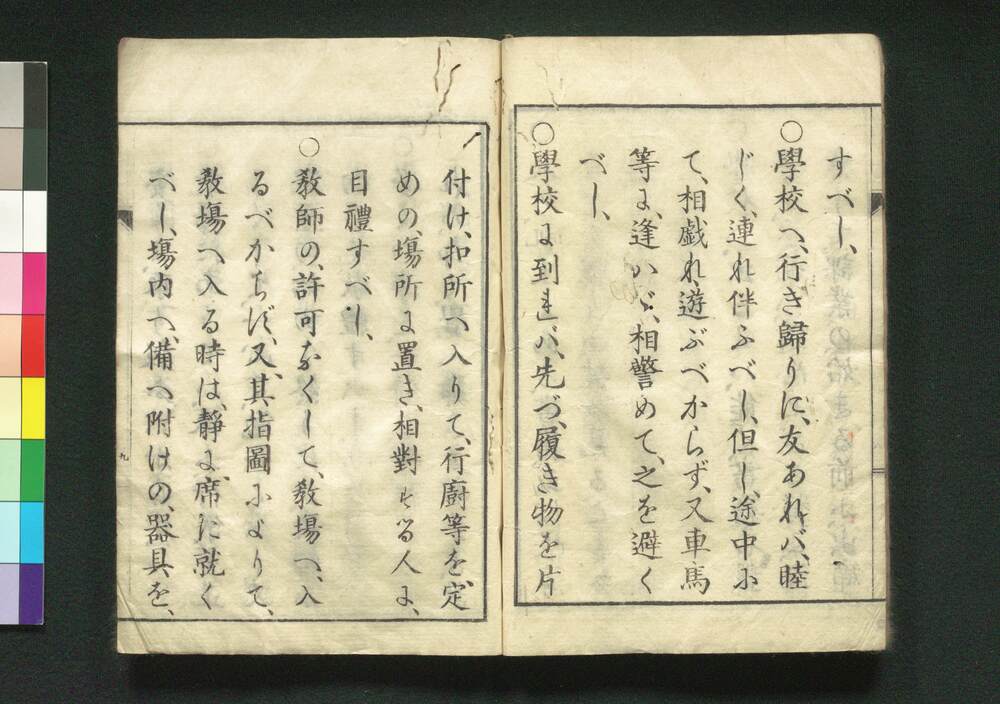 すべし、
○學校へ、行き歸りに、友あれバ、睦
じく、連れ伴ふべし、但し、途中ふ
て、相戯れ遊ぶべからず、又車馬
等に、逢ハゞ、相警めて、之を避く
べし、
○學校に到れバ、先づ、履き物を片
付け、扣所へ入りて、行廚等を、定
めの、場所に置き、相對する人に、
目禮すべし、
○教師の、許可なくして、教場へ、入
るべからず、又、其指圖ふよりて、
教場へ入る時は、靜に、席に就く
べし、場内へ、備へ附けの、器具を、
九